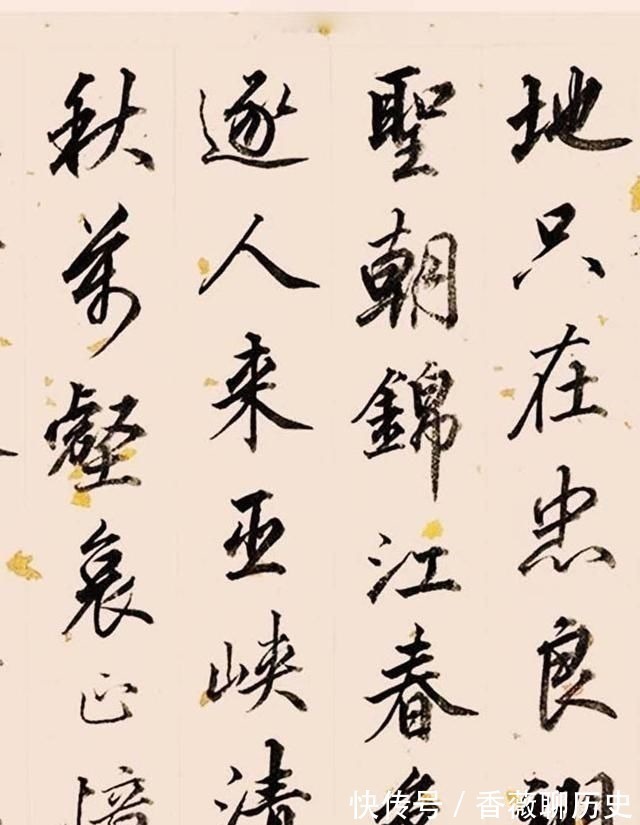 地只在忠良翊
聖朝錦江春色
逐人来巫峽清
秋萬壑哀正憶
快传号 / 香薇聊历史